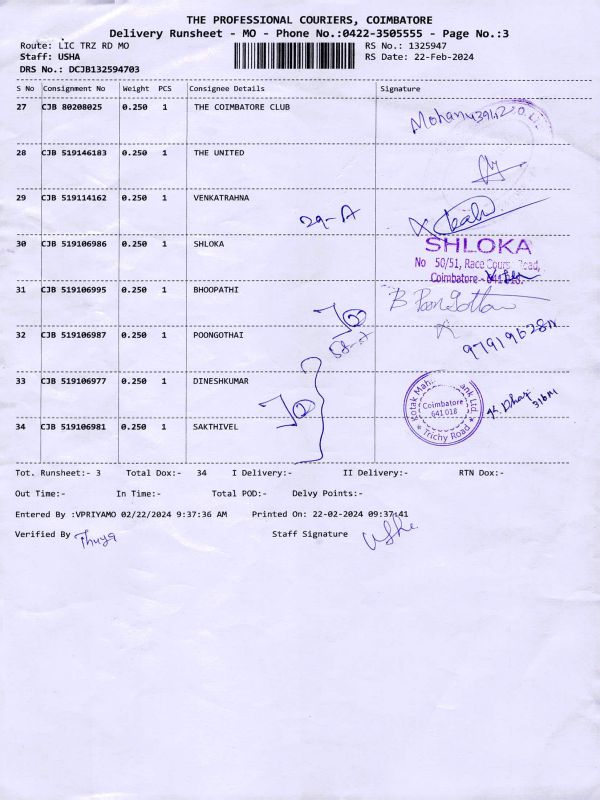 THE PROFESSIONAL COURIERS, COIMBATORE
Delivery Runsheet - MO - Phone No.:0422-3505555 - Page No.:3
Route: LIC TRZ RD MO RS No.: 1325947
Staff: USHA RS Date: 22-Feb-2024
DRS No.: DCJB132594703
S No Consignment No Weight PCS Consignee Details Signature
27 CJB 80208025 0.250 1 THE COIMBATORE CLUB
28 CJB 519146183 0.250 1 THE UNITED
29 CJB 519114162 0.250 1 VENKATRAHNA
29-A
30 CJB 519106986 0.250 1 SHLOKA
SHLOKA
No 50/51, Race Cours Road,
Coimbatore - 641 018.
31 CJB 519106995 0.250 1 BHOOPATHI
B Poongothai
32 CJB 519106987 0.250 1 POONGOTHAI
33 CJB 519106977 0.250 1 DINESHKUMAR
Kotak Mah ank Ltd.
Coimbatore
641 018
Trichy Road
34 CJB 519106981 0.250 1 SAKTHIVEL
Tot. Runsheet:- 3 Total Dox:- 34 I Delivery:- II Delivery:- RTN Dox:-
Out Time:- In Time:- Total POD:- Delvy Points:-
Entered By :VPRIYAMO 02/22/2024 9:37:36 AM Printed On: 22-02-2024 09:37:41
Verified By Thuya Staff Signature Usha